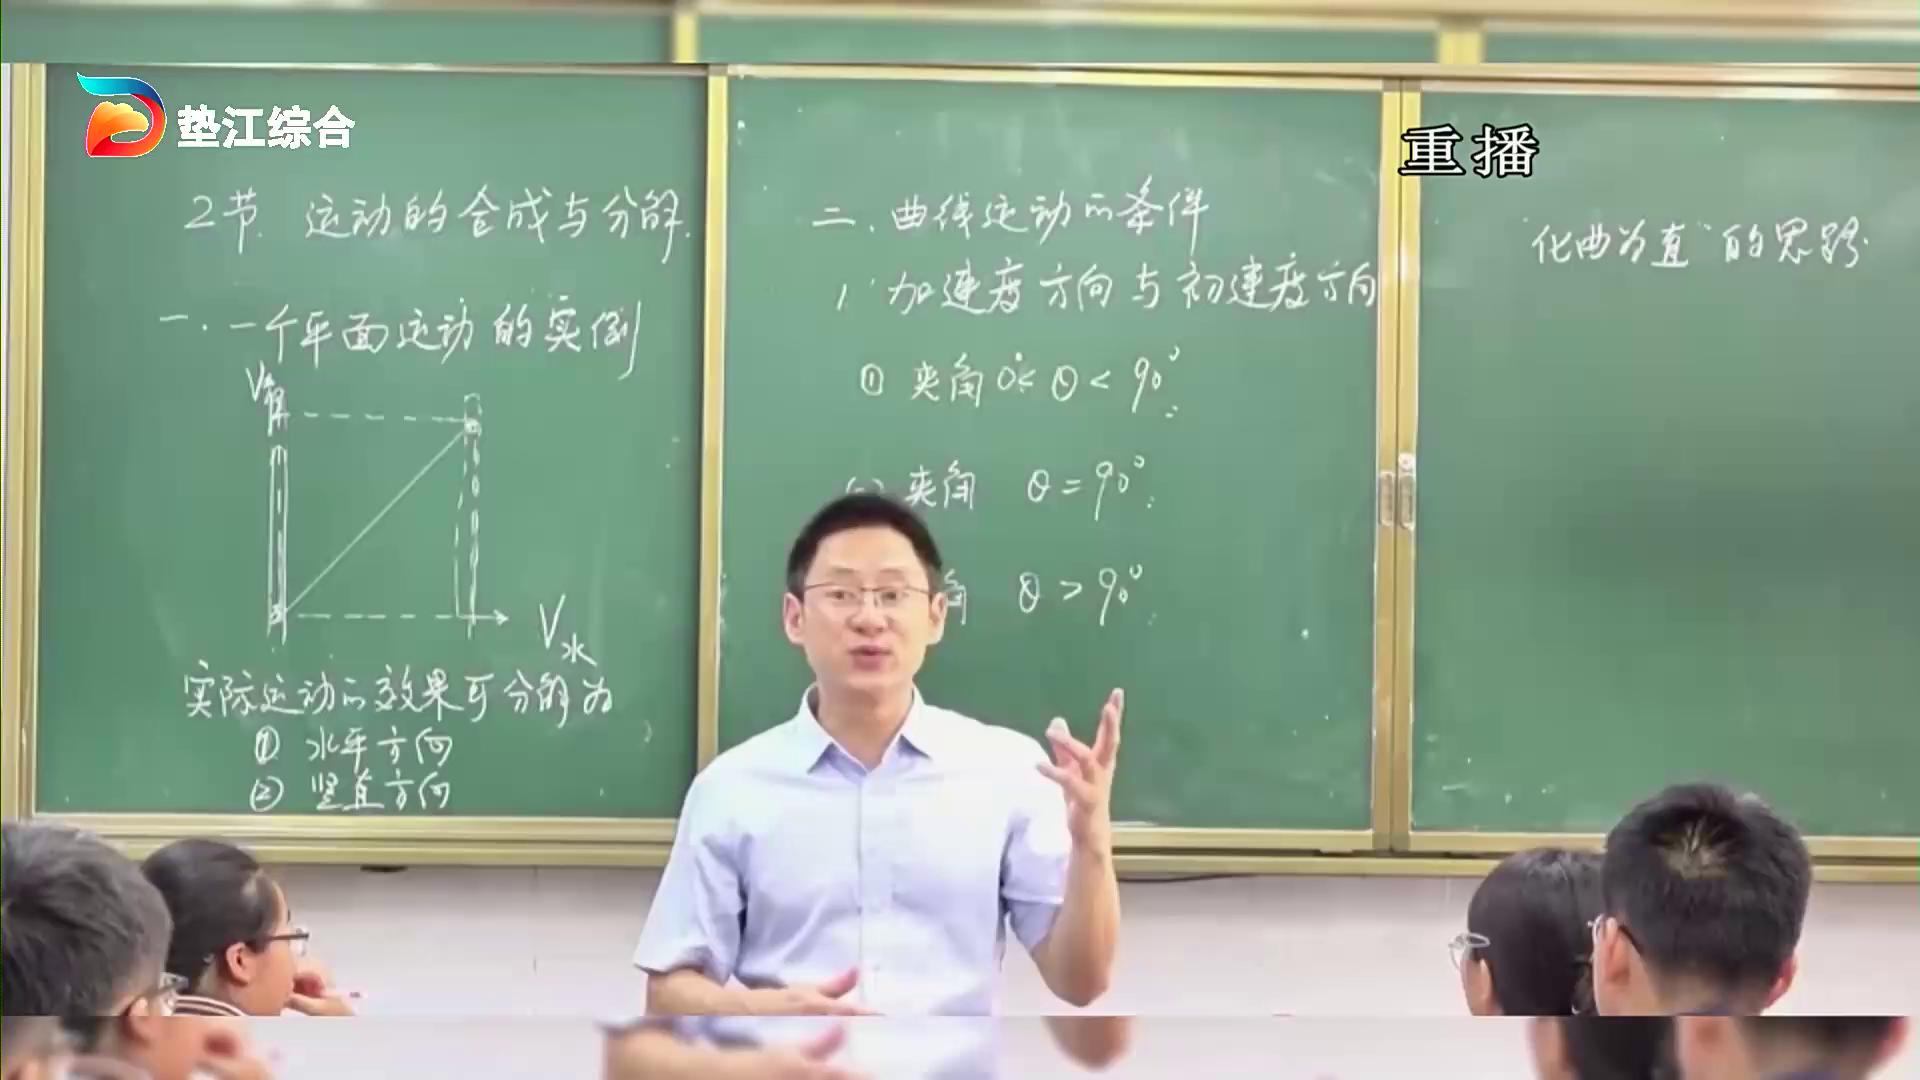 垫江综合
重播
2节. 运动的合成与分解.
一. 一个平面运动的实例
V
V水
实际运动的效果可分解为
① 水平方向
② 竖直方向
二. 曲线运动的条件
1. 加速度方向与初速度方向
① 夹角 0°< θ < 90°
夹角 θ = 90°
角 θ > 90°
"化曲为直"的思路